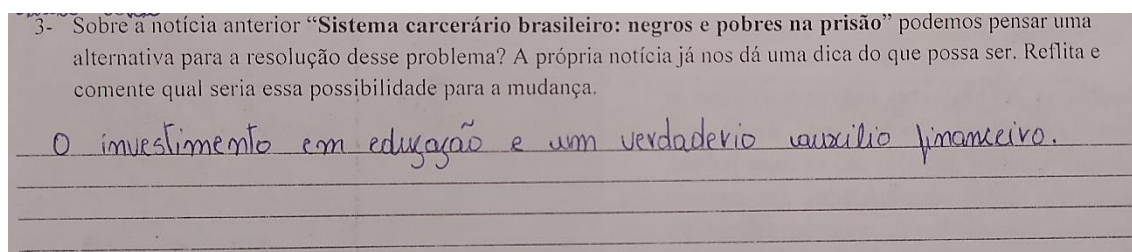 3- Sobre a notícia anterior “Sistema carcerário brasileiro: negros e pobres na prisão” podemos pensar uma
alternativa para a resolução desse problema? A própria notícia já nos dá uma dica do que possa ser. Reflita e
comente qual seria essa possibilidade para a mudança.
O investimento em edugação e um verdaderio auxilio financeiro.